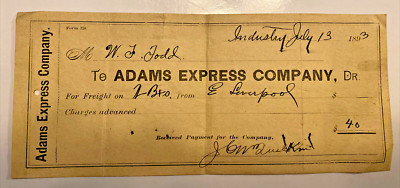 Adams Express Company.
Form 13
Industry July 13 1893
M W. F. Todd
To ADAMS EXPRESS COMPANY, Dr.
For Freight on 2 Bxs. from E Liverpool $
Charges advanced $ 40
Received Payment for the Company,